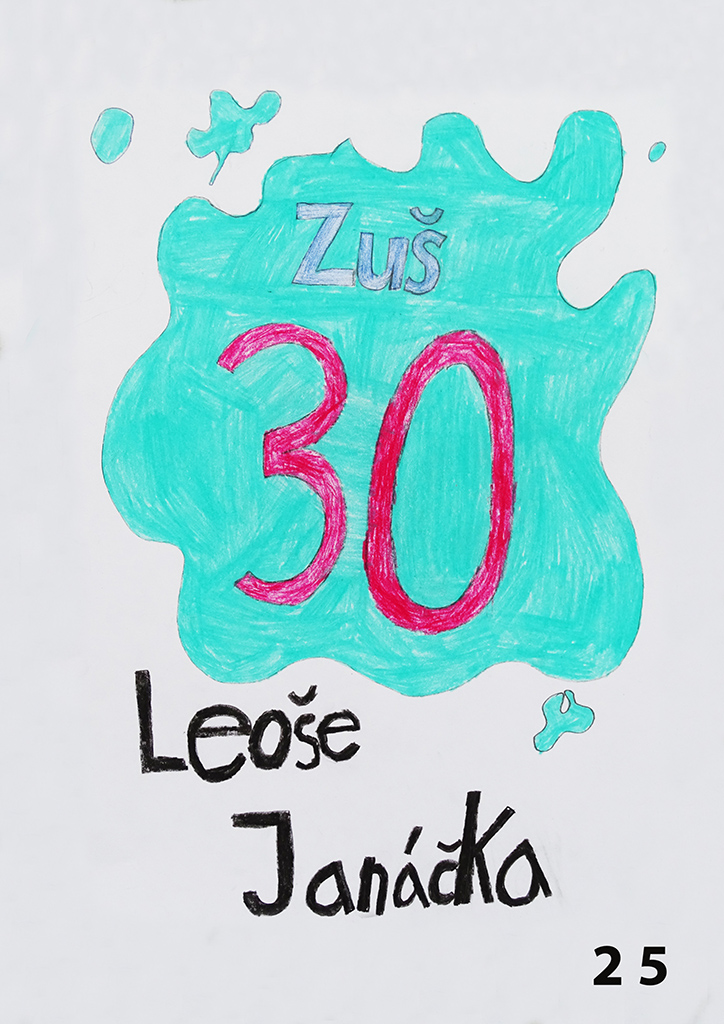 Zuš
30
Leoše
Janáčka
25